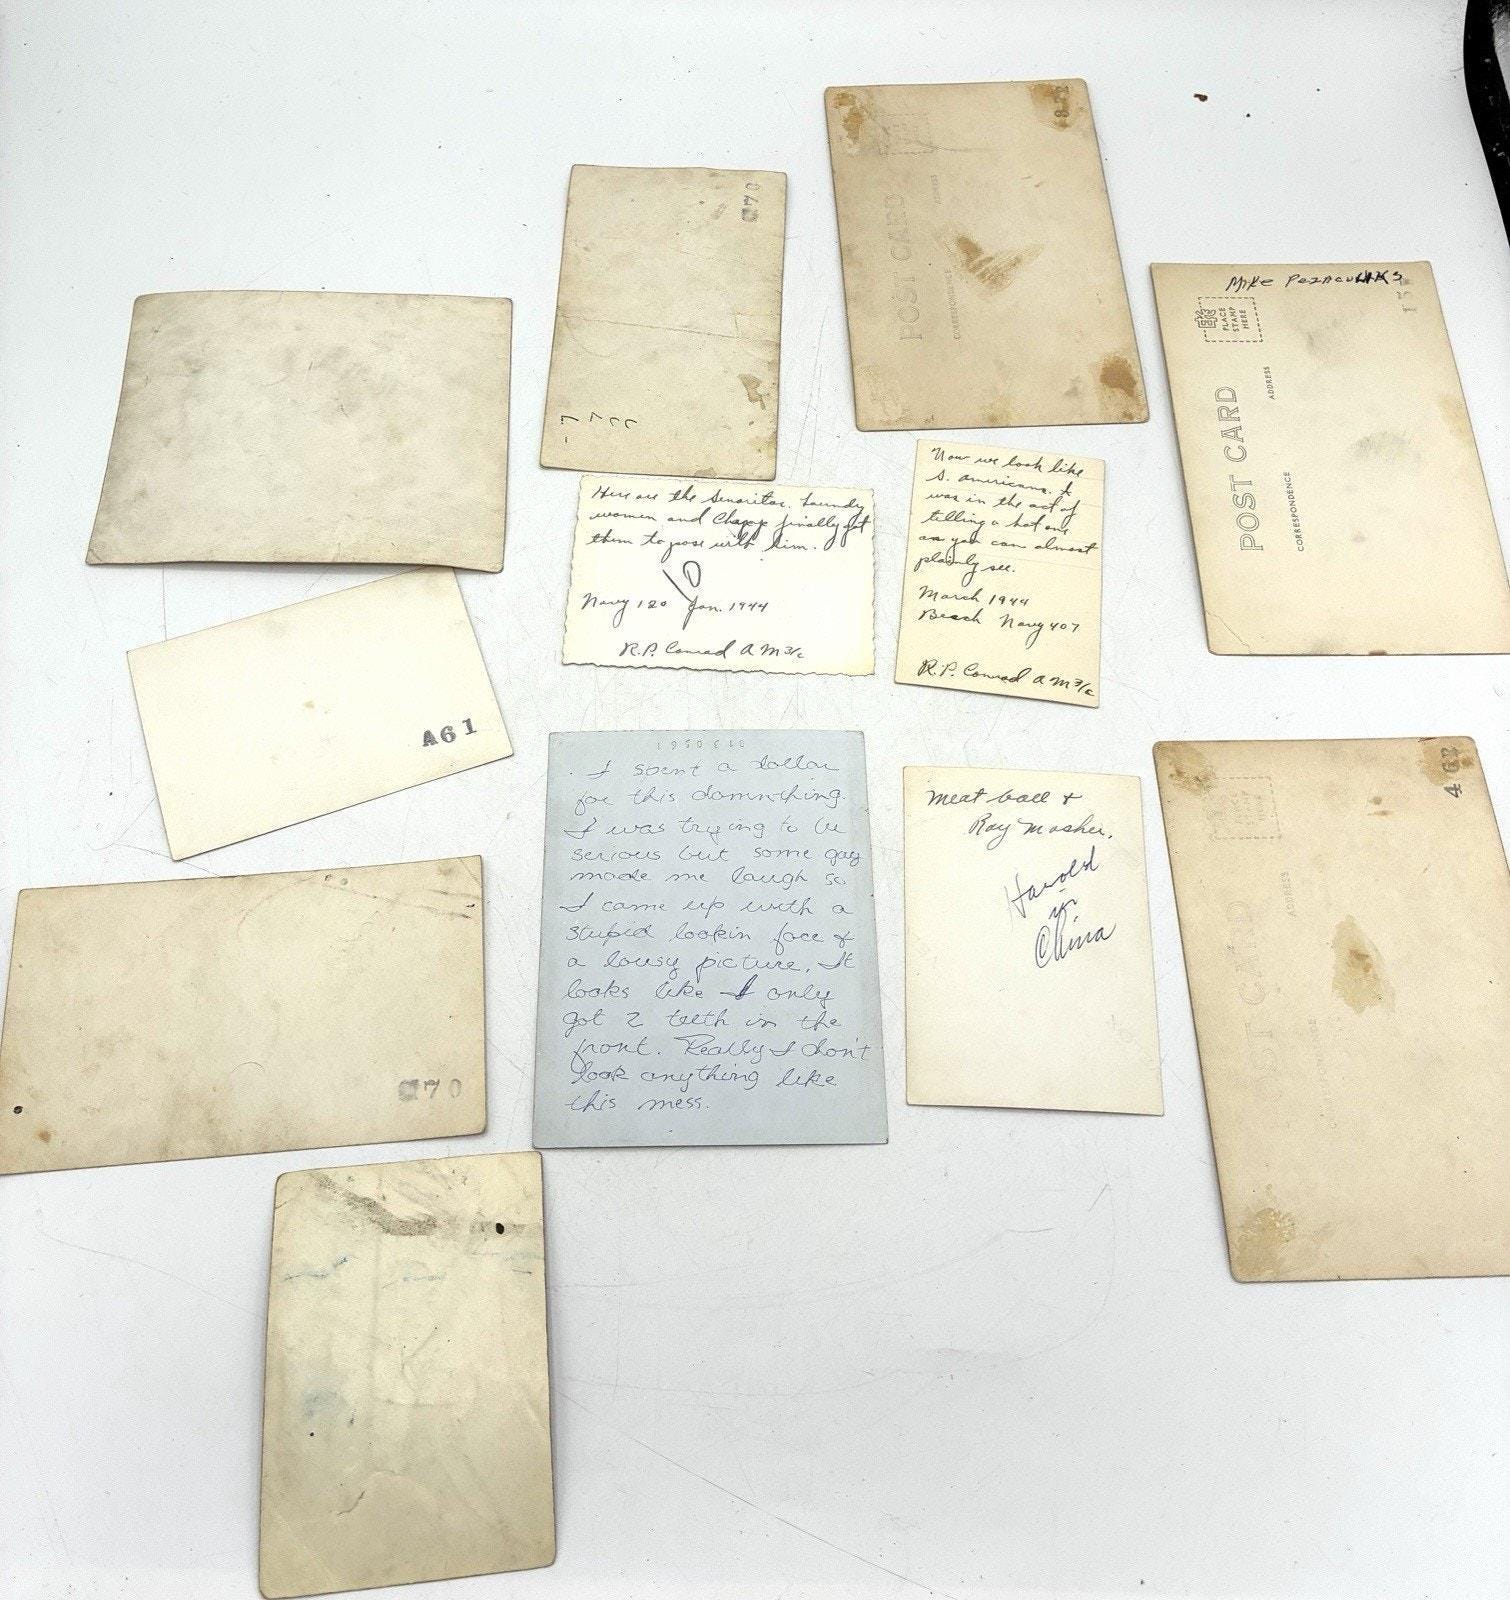 70
POST CARD
CORRESPONDENCE
ADDRESS
Mike
PLACE
STAMP
HERE
POST CARD
CORRESPONDENCE
ADDRESS
Here are the Senoritas. Laundry
women and finally got
them to pose with him.
Navy 120 Jan. 1944
R.P. Conrad AM3/c
Now we look like
S. Americans. I
was in the act of
telling a hot one
as you can almost
plainly see.
March 1944
Beach Navy 407
R.P. Conrad AM3/c
A61
I spent a dollar
for this damnthing.
I was trying to be
serious but some guy
made me laugh so
I came up with a
stupid lookin face &
a lousy picture. It
looks like I only
got 2 teeth in the
front. Really I don't
look anything like
this mess.
Meat ball &
Ray Mosher.
Harold
in
China
ADDRESS
70